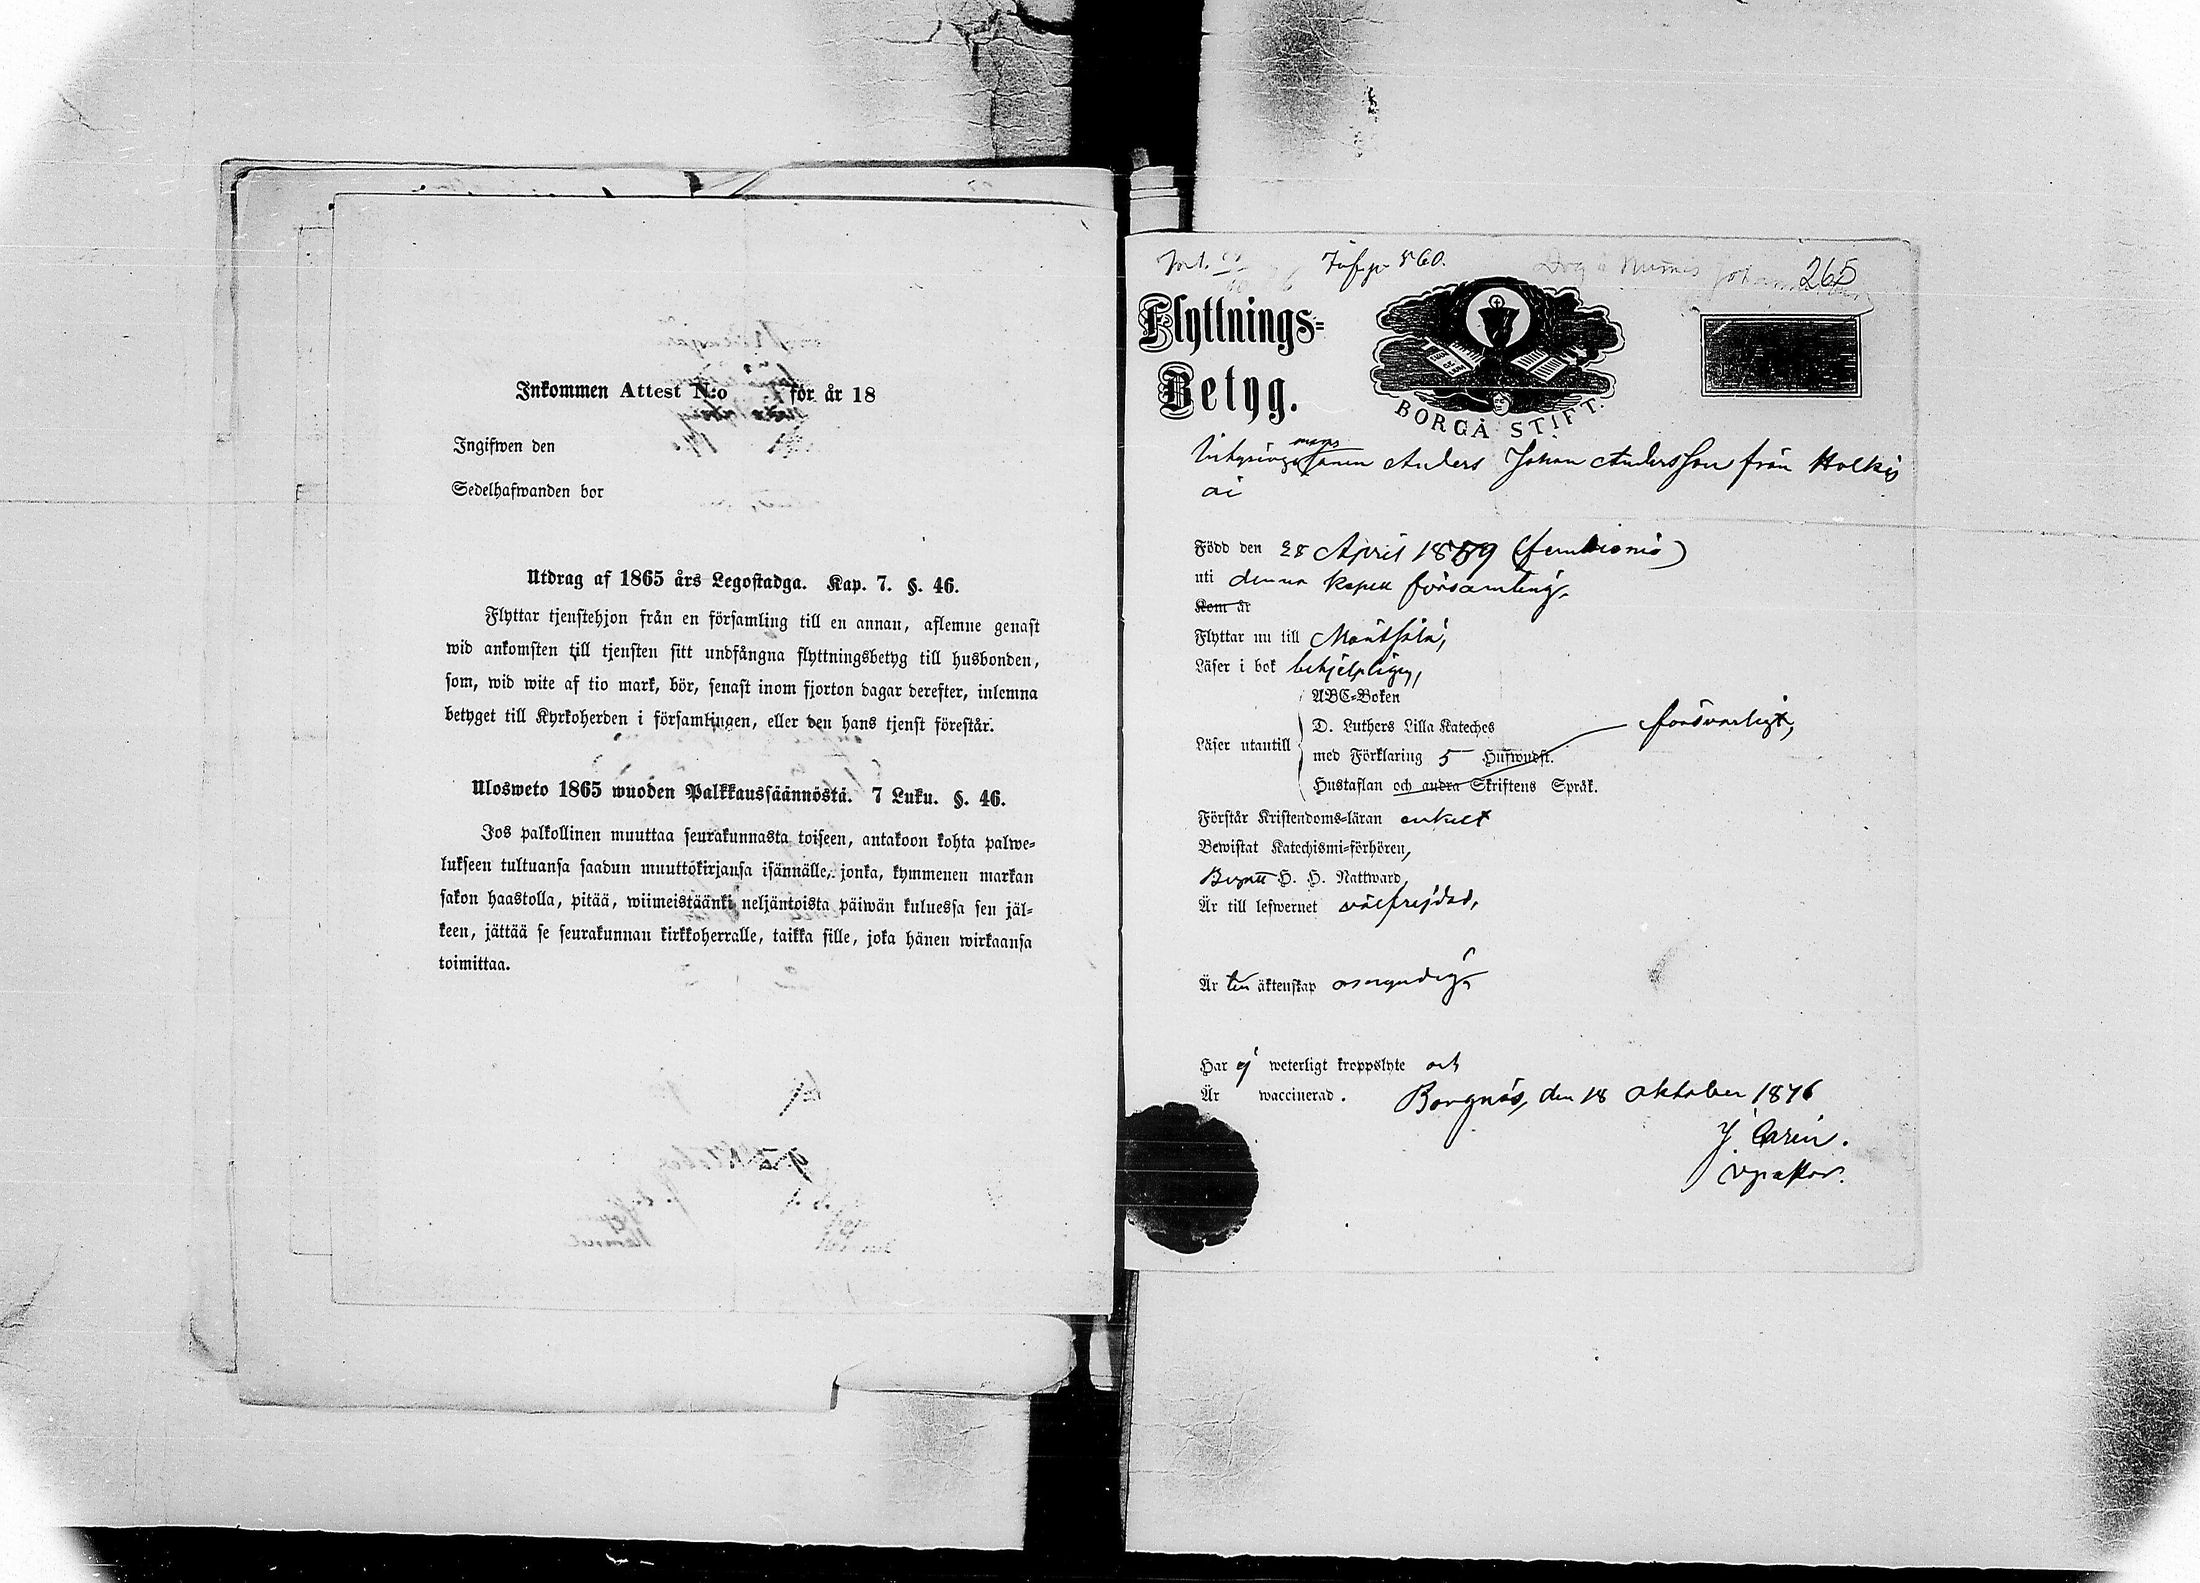 Inkommen Attest N:o för år 18
Ingifwen den
Sedelhafwanden bor
Utdrag af 1865 års Legostadga. Kap. 7. §. 46.
Flyttar tjenstehjon från en församling till en annan, aflemne genast
wid ankomsten till tjensten sitt undfångna flyttningsbetyg till husbonden,
som, wid wite af tio mark, bör, senast inom fjorton dagar derefter, inlemna
betyget till Kyrkoherden i församlingen, eller den hans tjenst förestår.
Ulosweto 1865 wuoden Palkkaussäännöstä. 7 Luku. §. 46.
Jos palkollinen muuttaa seurakunnasta toiseen, antakoon kohta palwe-
lukseen tultuansa saadun muuttokirjansa isännälle, jonka, kymmenen markan
sakon haastolla, pitää, wiimeistäänki neljäntoista päiwän kuluessa sen jäl-
keen, jättää se seurakunnan kirkkoherralle, taikka sille, joka hänen wirkaansa
toimittaa.
560.
265
Flyttnings-
Betyg.
BORGÅ STIFT.
Anders Johan Andersson från
Född den 28 April 1859
uti denna kapell församling.
Kom år
Flyttar nu till Mäntsälä,
Läser i bok behjelpligen,
ABC-Boken
D. Luthers Lilla Kateches försvarligt,
Läser utantill
med Förklaring 5 Hufwudst.
Hustaflan och andra Skriftens Språk.
Förstår Kristendoms-läran enkelt
Bewistat Katechismi-förhören,
Begått H. H. Nattward,
Är till lefwernet välfrejdad,
Är till äktenskap omyndig,
Har ej weterligt kroppslyte och
Är waccinerad. Borgnäs, den 18 Oktober 1876